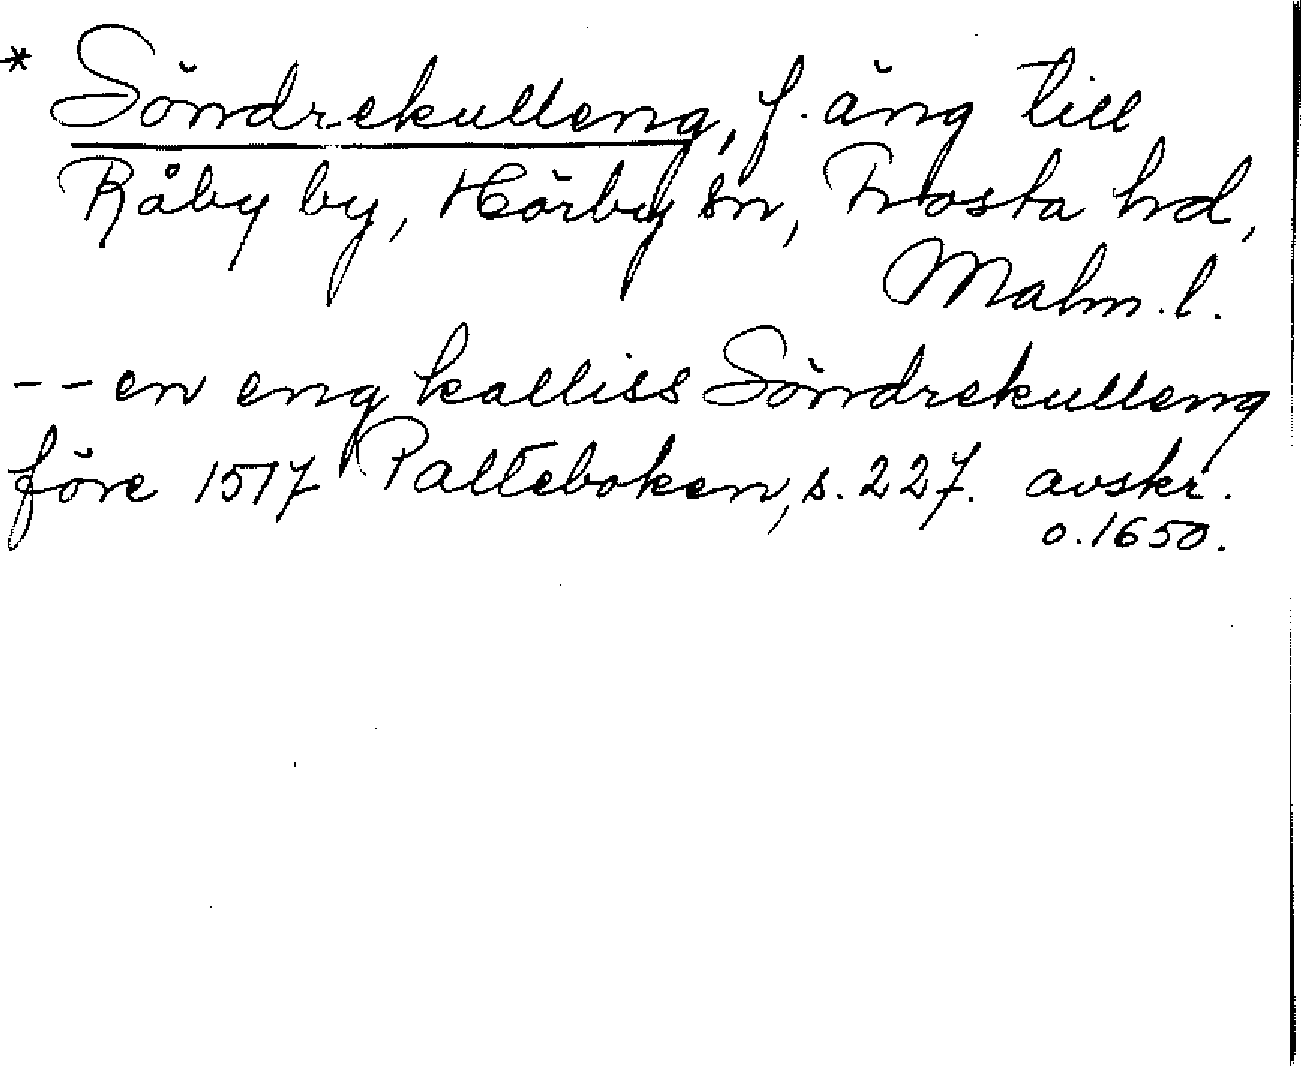 * Söndrekulleng, f. äng till
Råby by, Hörby sn, Frosta hd,
Malm. l.
-- en eng kalliss Söndrekulleng
före 1517 Palteboken, s. 227. avskr.
o. 1650.